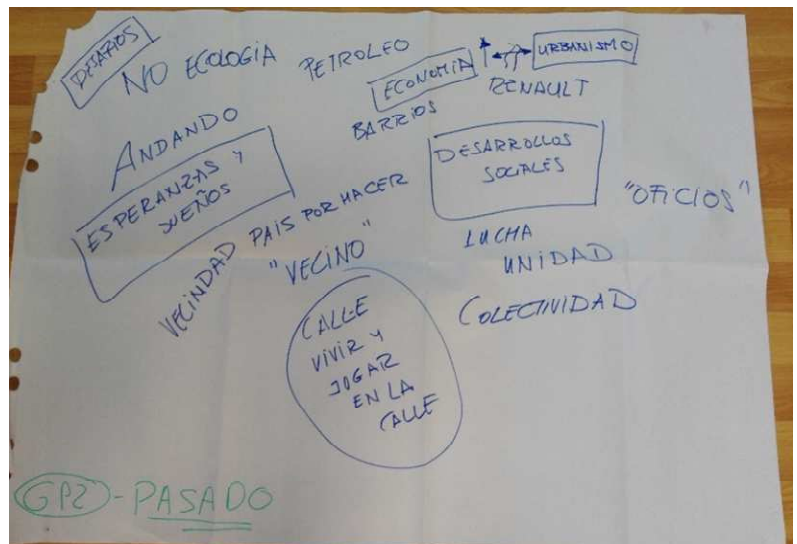 DESAFIOS
NO ECOLOGIA
PETROLEO
ECONOMIA
URBANISMO
RENAULT
BARRIOS
ANDANDO
ESPERANZAS Y
SUEÑOS
DESARROLLOS
SOCIALES
"OFICIOS"
PAIS POR HACER
VECINDAD
"VECINO"
LUCHA
UNIDAD
COLECTIVIDAD
CALLE
VIVIR Y
JUGAR
EN LA
CALLE
GP2 - PASADO